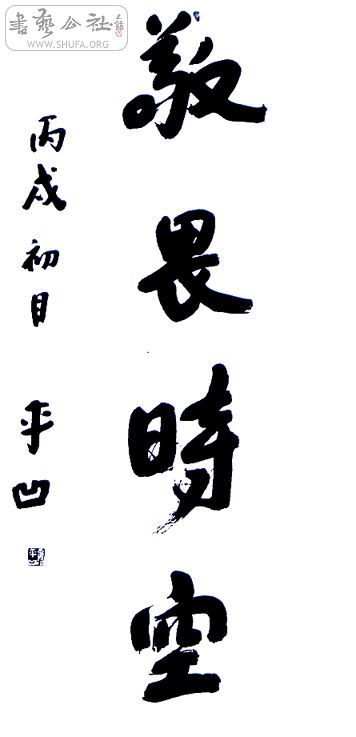 敬畏時空
丙戌初月 平凹
書藝公社
WWW.SHUFA.ORG